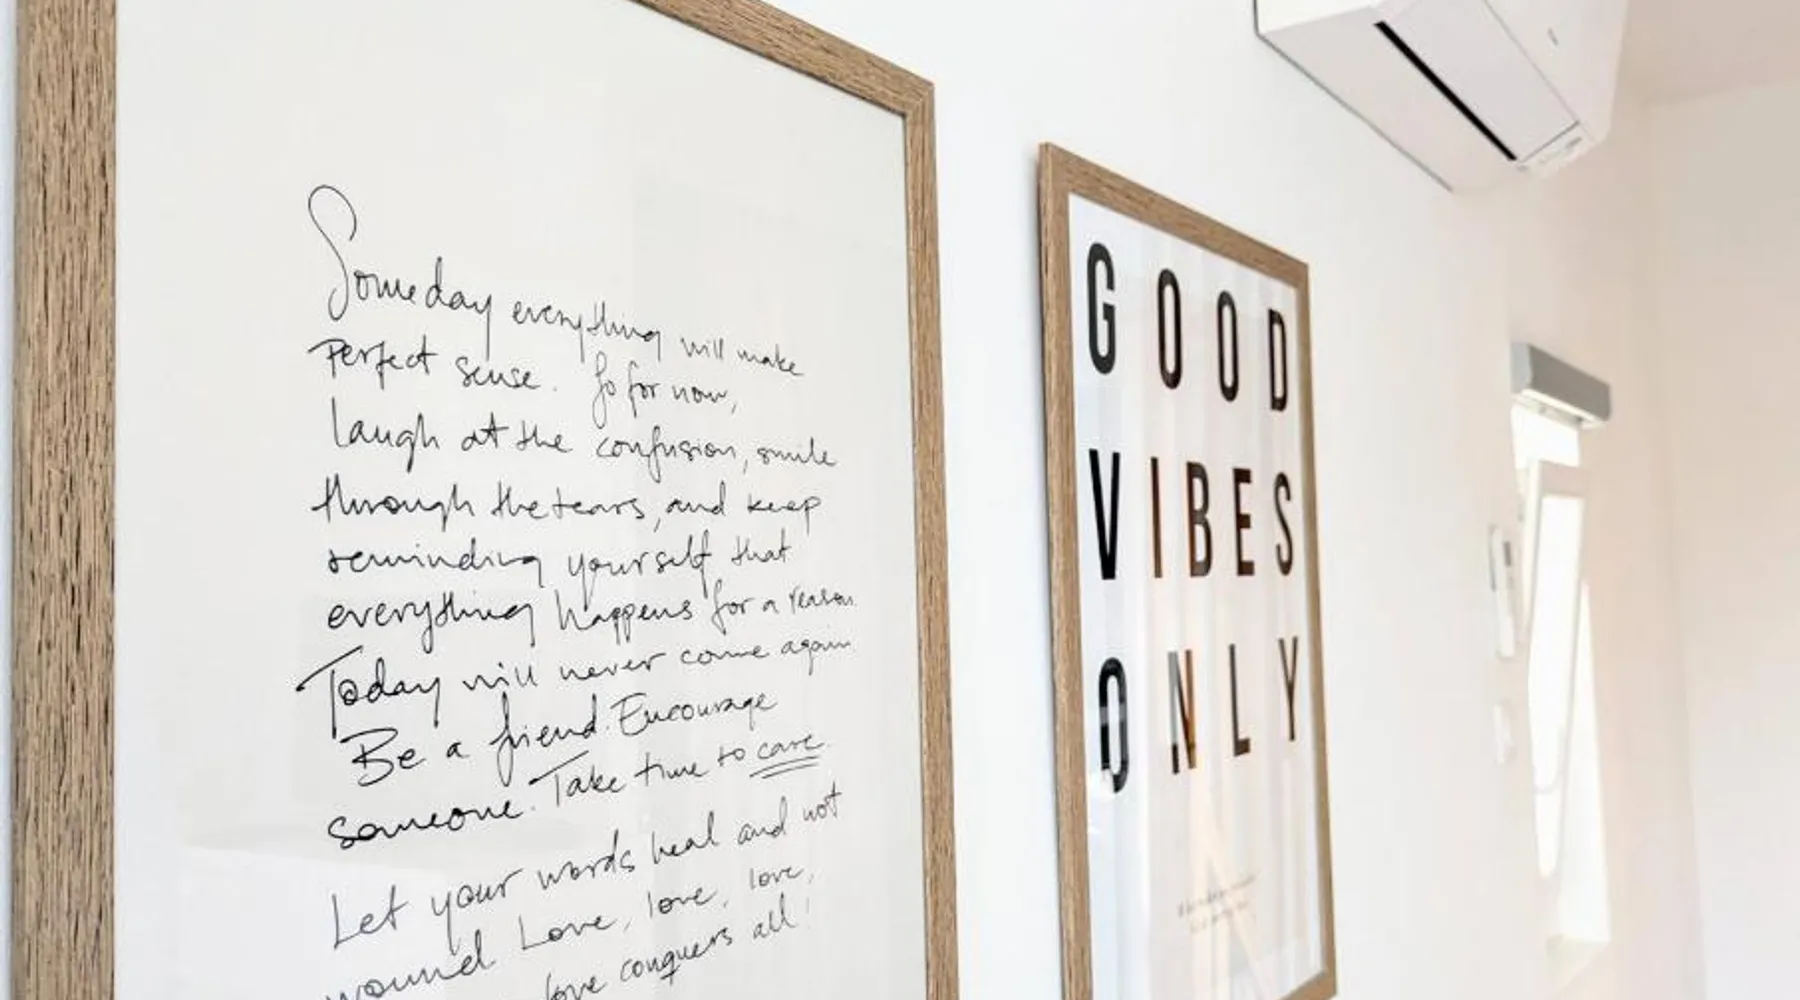 Someday everything will make
perfect sense. So for now,
laugh at the confusion, smile
through the tears, and keep
reminding yourself that
everything happens for a reason.
Today will never come again.
Be a friend. Encourage
someone. Take time to care.
Let your words heal and not
wound. Love, love, love,
love conquers all!
GOOD
VIBES
ONLY